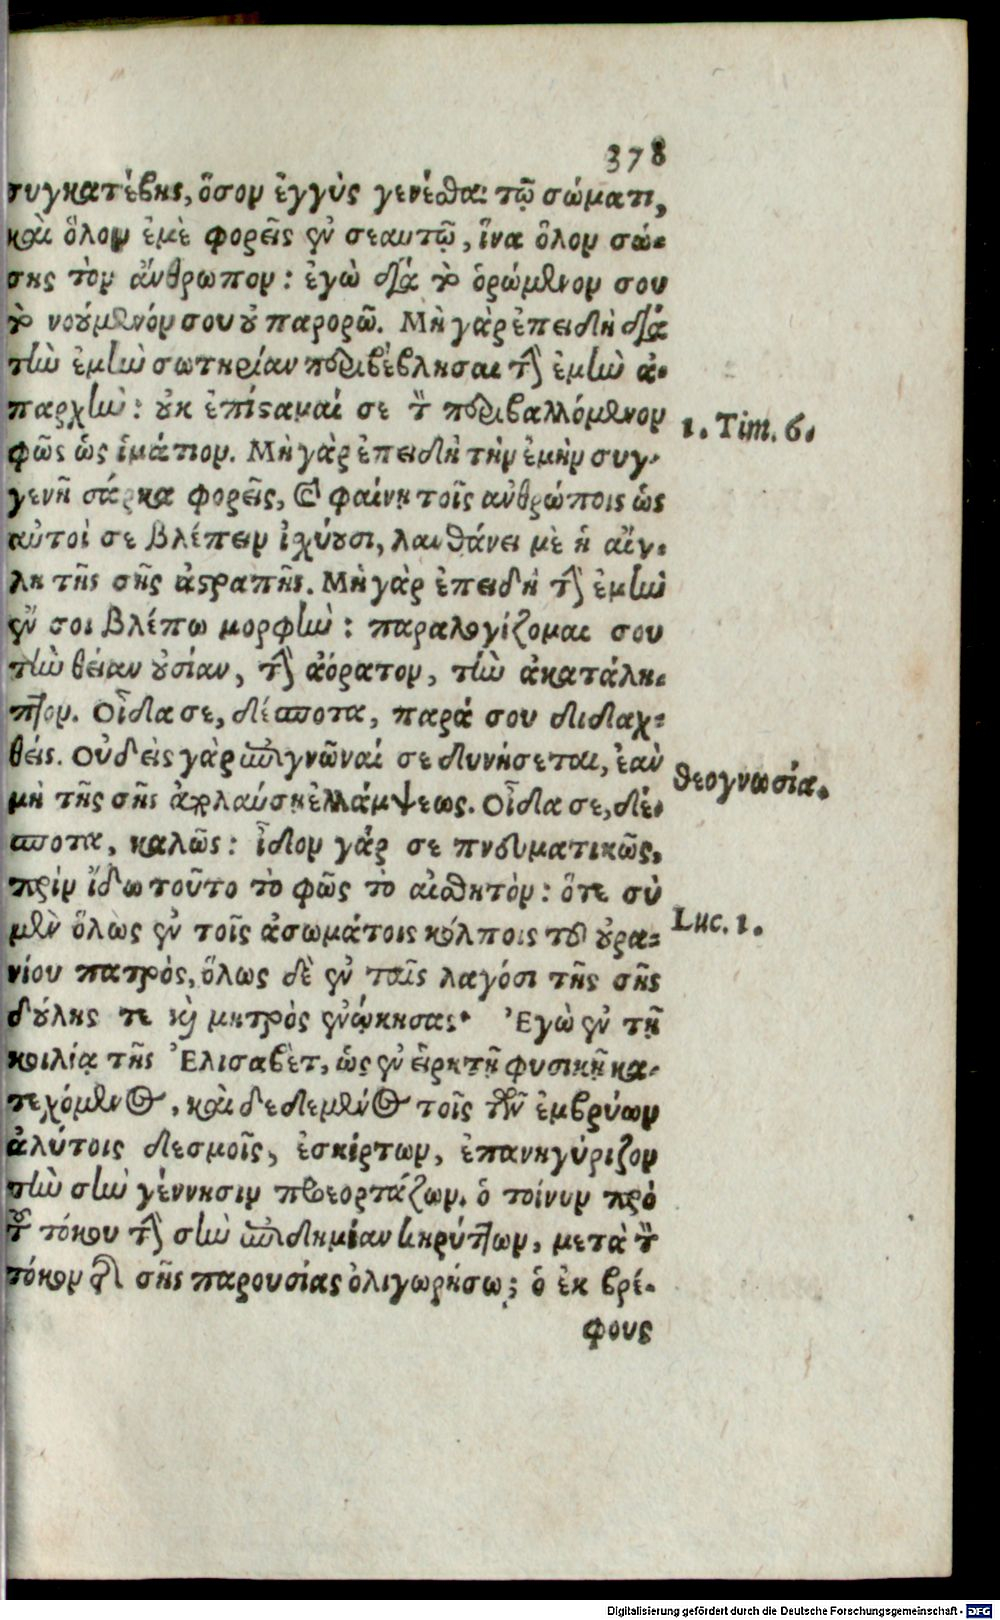 378
συγκατέβης, ὅσον ἐγγὺς γενέσθαι τῷ σώματι,
καὶ ὅλον ἐμὲ φορεῖς ἐν σεαυτῷ, ἵνα ὅλον σώ-
σῃς τὸν ἄνθρωπον: ἐγὼ διὰ τὸ ὁρώμενον σου
τὸ νούμενόν σου οὐ παρορῶ. Μὴ γὰρ ἐπειδὴ διὰ
τὴν ἐμὴν σωτηρίαν περιβέβλησαι τὴν ἐμὴν ἀ-
παρχὴν: οὐκ ἐπίσταμαί σε τὸν περιβαλλόμενον
φῶς ὡς ἱμάτιον. Μὴ γὰρ ἐπειδὴ τὴν ἐμὴν συγ-
γενῆ σάρκα φορεῖς, καὶ φαίνῃ τοῖς ἀνθρώποις ὡς
αὐτοί σε βλέπειν ἰσχύουσι, λανθάνει μὲ ἡ αἴγ-
λη τῆς σῆς ἀστραπῆς. Μὴ γὰρ ἐπειδὴ τὴν ἐμὴν
ἐν σοι βλέπω μορφὴν: παραλογίζομαι σου
τὴν θείαν οὐσίαν, τὴν ἀόρατον, τὴν ἀκατάλη-
πτον. Οἶδα σε, δέσποτα, παρά σου διδαχ-
θείς. Οὐδεὶς γὰρ ἐπιγνῶναί σε δυνήσεται, ἐὰν
μὴ τῆς σῆς ἀπολαύσῃ ἐλλάμψεως. Οἶδα σε, δέ-
σποτα, καλῶς: ἶδον γάρ σε πνευματικῶς,
πρίν ἴδω τοῦτο τὸ φῶς τὸ αἰσθητὸν: ὅτε σὺ
μὲν ὅλως ἐν τοῖς ἀσωμάτοις κόλποις τοῦ οὐρα-
νίου πατρὸς, ὅλως δὲ ἐν ταῖς λαγόσι τῆς σῆς
δούλης τε καὶ μητρὸς ἐνῴκησας· Ἐγὼ ἐν τῇ
κοιλίᾳ τῆς Ἐλισαβὲτ, ὡς ἐν εἱρκτῇ φυσικῇ κα-
τεχόμενος, καὶ δεδεμένος τοῖς τῶν ἐμβρύων
ἀλύτοις δεσμοῖς, ἐσκίρτων, ἐπανηγύριζον
τὴν σὴν γέννησιν προεορτάζων. ὁ τοίνυν πρὸ
τοῦ τόκου τὴν σὴν ἐπιδημίαν κηρύττων, μετὰ τὸν
τόκον ἐπὶ σῆς παρουσίας ὀλιγωρήσω; ὁ ἐκ βρέ-
φους
1. Tim. 6.
θεογνωσία.
Luc. 1.
Digitalisierung gefördert durch die Deutsche Forschungsgemeinschaft - DFG